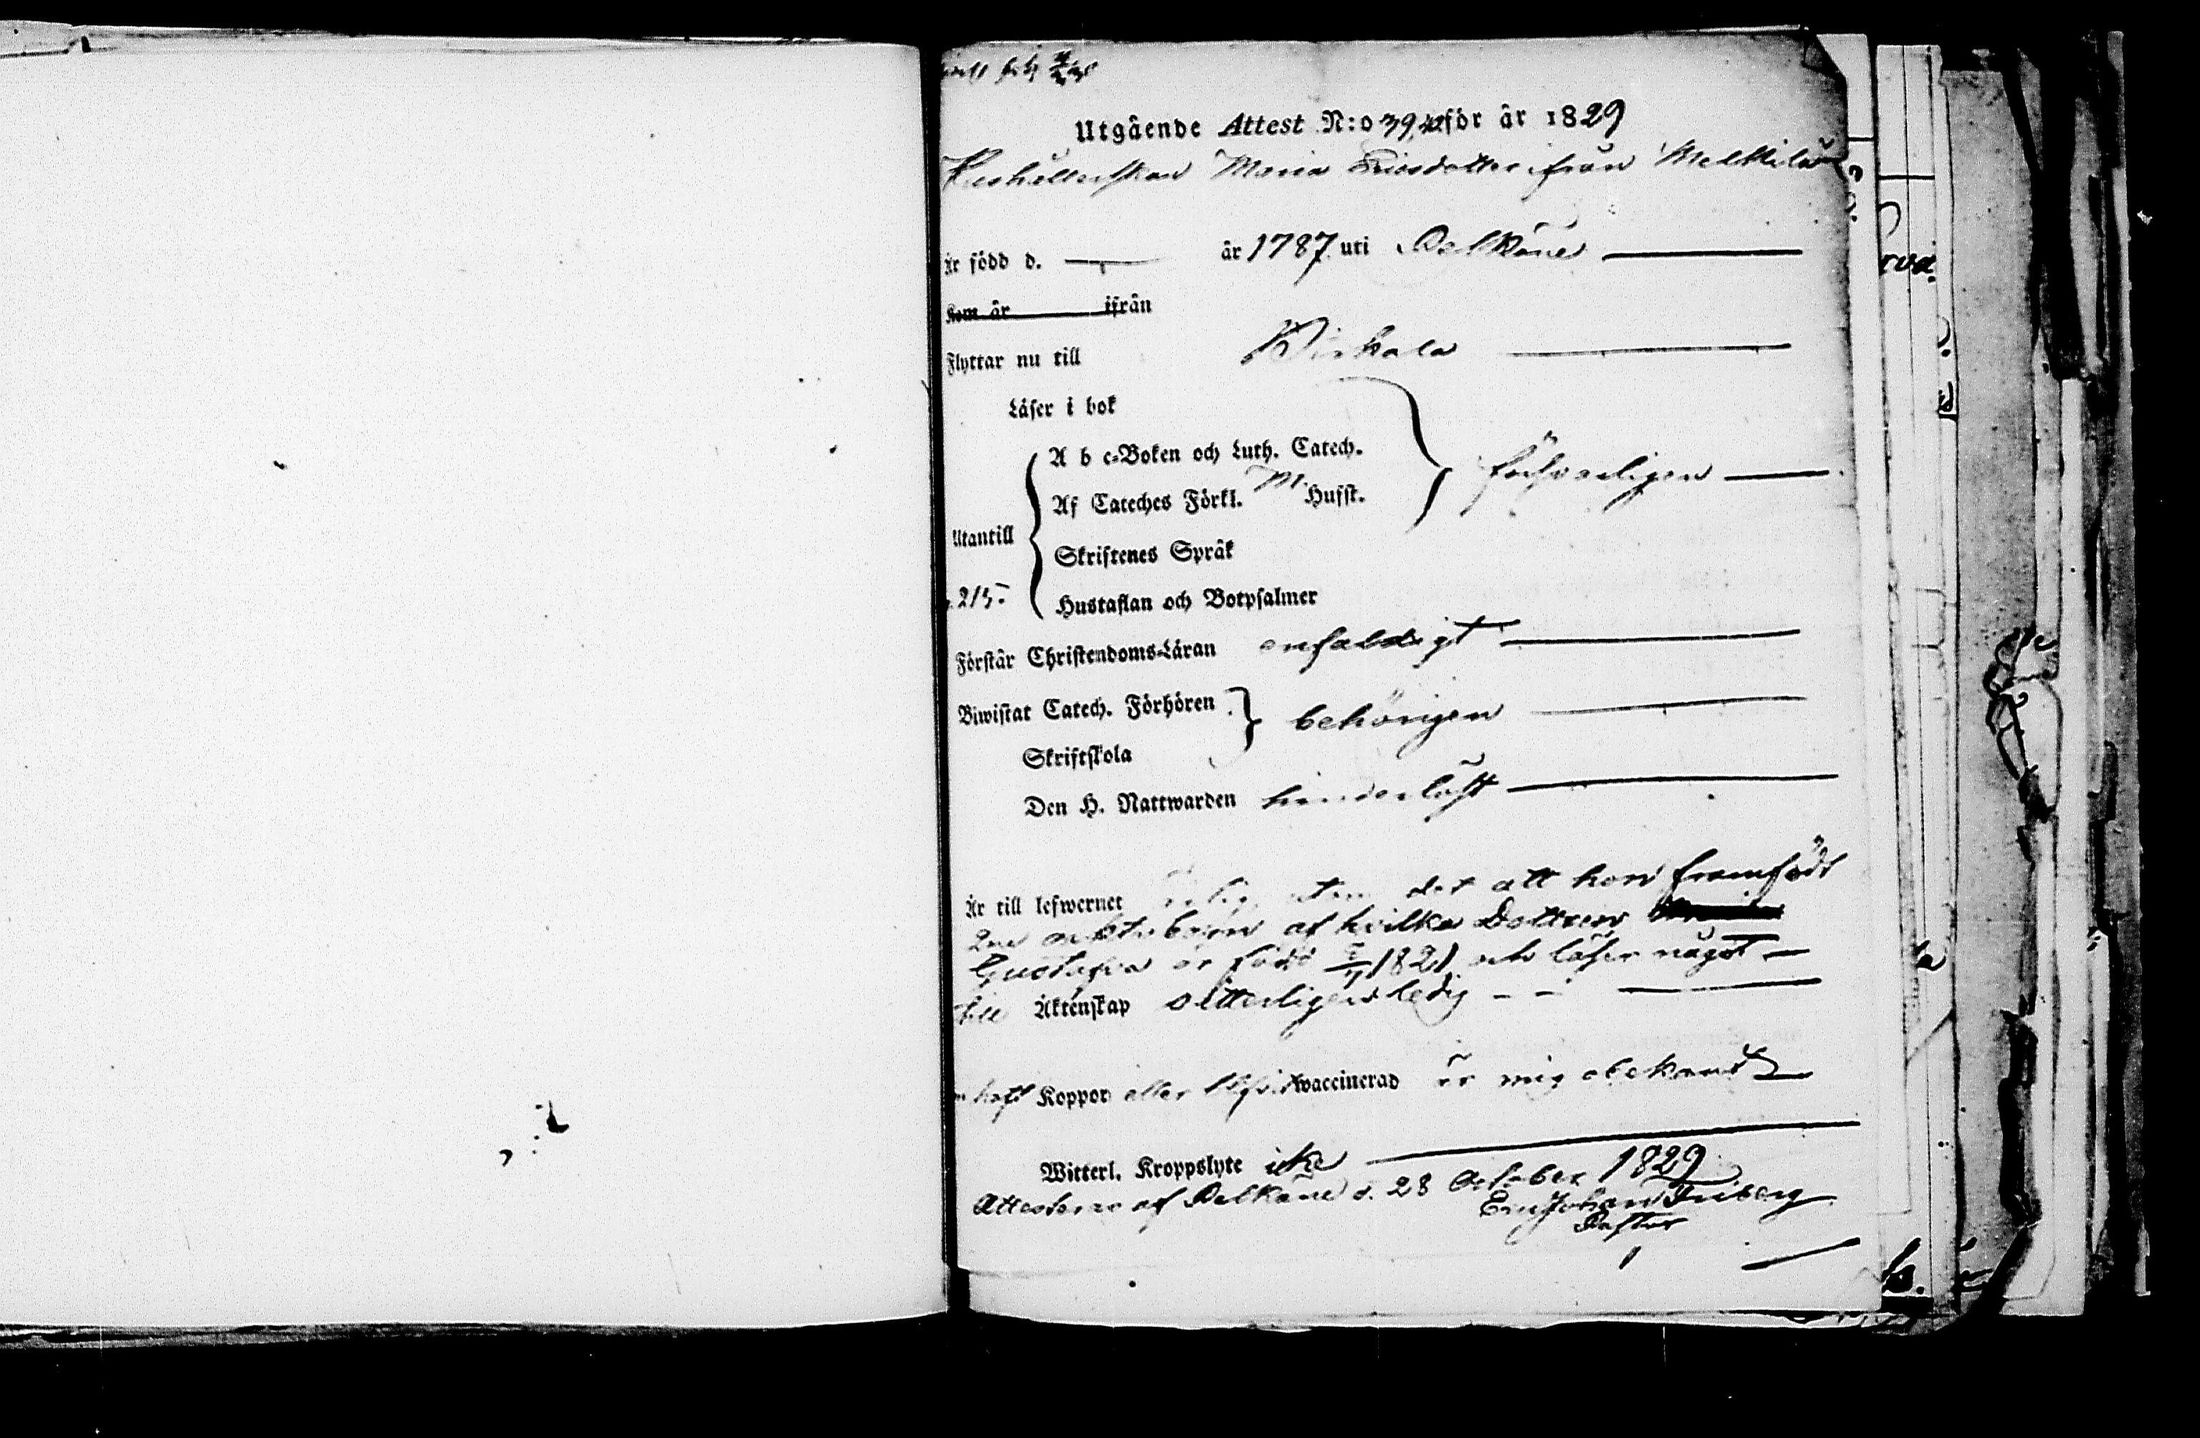 Utgående Attest N:o 39,40 för år 1829
Hushållerskan Maria Ericsdotter ifrån Melkilä
Är född d. — år 1787 uti Pelkäne —
Kom år ifrån
Flyttar nu till Birkala —
Läser i bok
A b c-Boken och Luth. Catech.
Af Cateches Förkl. M. Hufst. försvarligen —
Utantill
Skriftenes Språk
p. 215.
Hustaflan och Botpsalmer
Förstår Christendoms-Läran enfaldigt —
Biwistat Catech. Förhören behörigen —
Skriftskola
Den H. Nattwarden hinderlöst —
Är till lefwernet utom det att hon framfödt
2ne oäkta barn af hvilka Dottren
Gustafva är född 1821 och läser något —
till Äktenskap vitterligen ledig - - —
haft Koppor eller blifvit waccinerad är mig obekant —
Witterl. Kroppslyte icke —
Attesterar af Pelkäne d. 28 October 1829
Eric Johan Friberg
Pastor